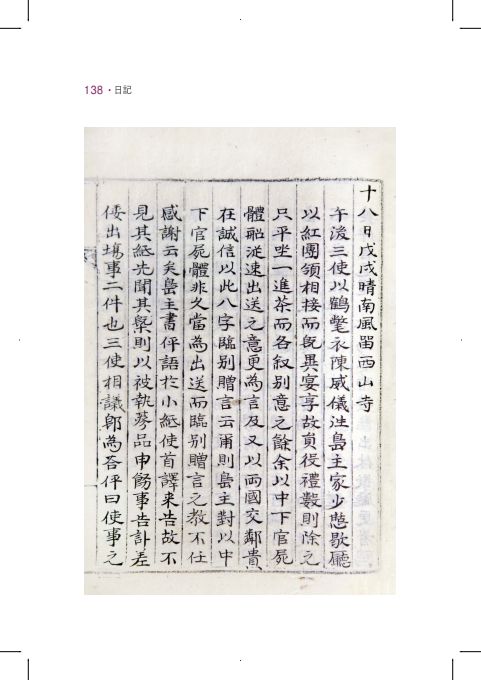 138 · 日記
十八日戊戌晴南風留西山寺
午後三使以鶴氅衣陳威儀徃島主家少憇歇廳
以紅團領相接而旣異宴享故貟役禮數則除之
只平坐一進茶而各叙別意之餘余以中下官屍
體艌從速出送之意更為言及又以兩國交鄰貴
在誠信以此八字臨別贈言云爾則島主對以中
下官屍體非久當為出送而臨別贈言之教不任
感謝云矣島主書伻語於小紙使首譯来告故不
見其紙先聞其槩則以被執蔘品申飭事告訃差
倭出塲事二件也三使相議即為答伻曰使事之